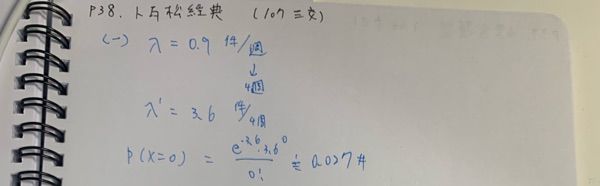 P38. 卜瓦松經典 (107 三交)
(一) λ = 0.9 件/週
↓
4週
λ' = 3.6 件/4週
P(X=0) = e^-3.6 · 3.6^0 / 0! ≒ 0.027 #